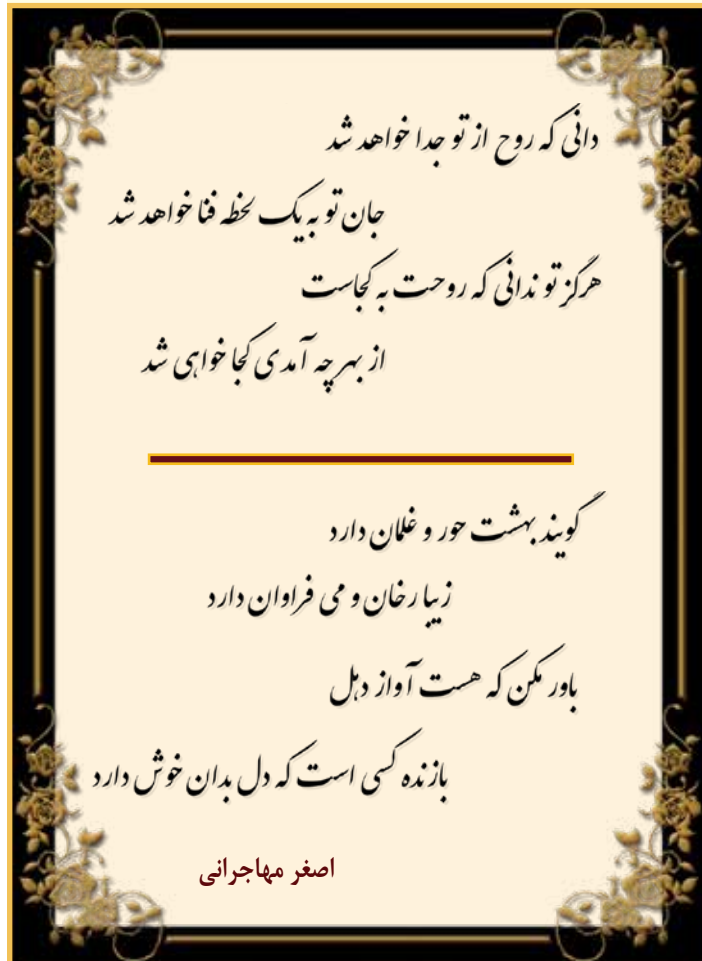 دانی که روح از تو جدا خواهد شد
جان تو به یک لحظه فنا خواهد شد
هرگز تو ندانی که روحت به کجاست
از بهر چه آمدی کجا خواهی شد
گویند بهشت حور و غلمان دارد
زیبا رخان و می فراوان دارد
باور مکن که هست آواز دهل
بازنده کسی است که دل بدان خوش دارد
اصغر مهاجرانی